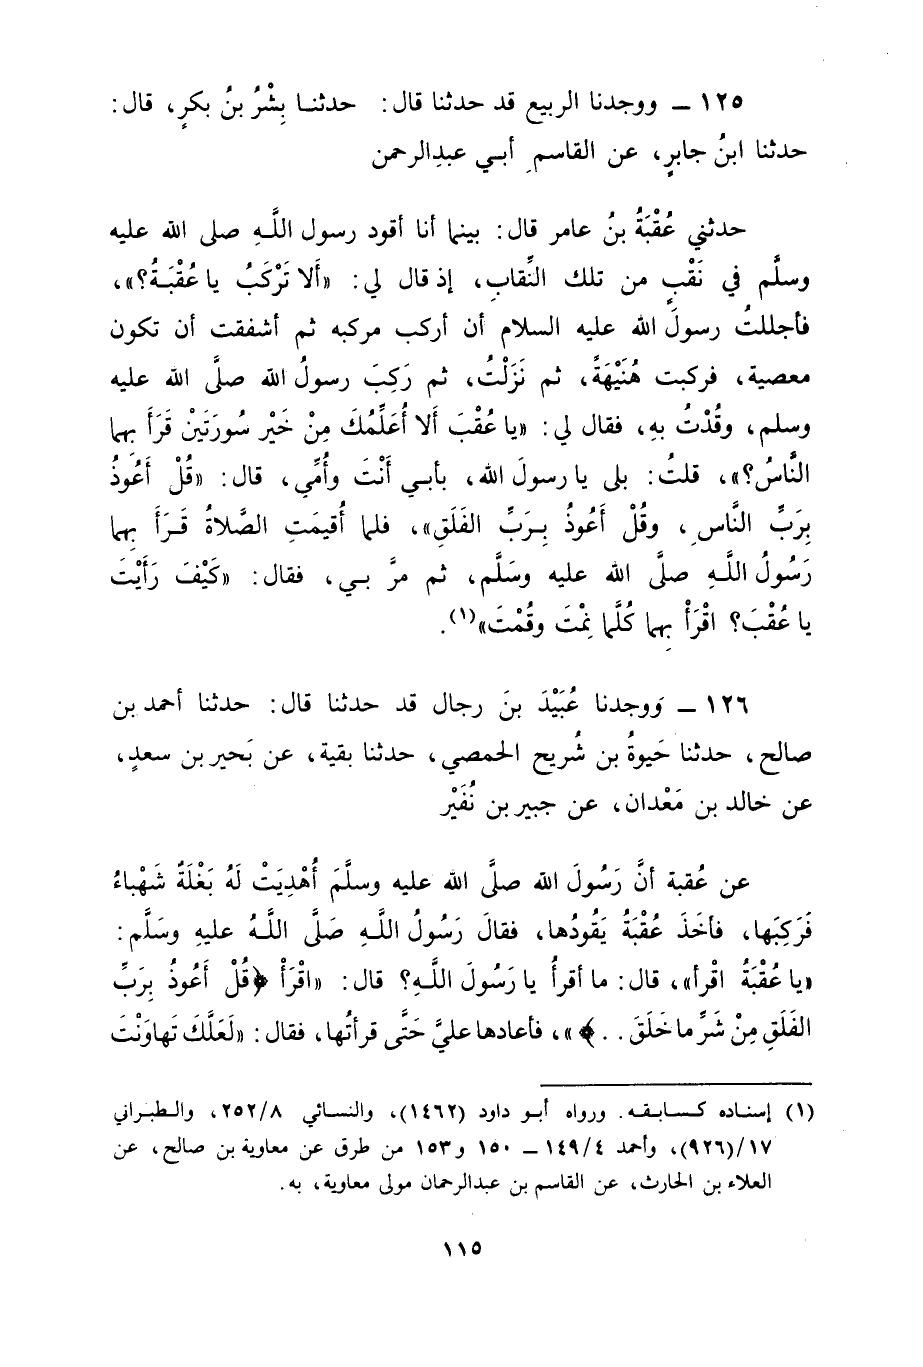 ١٢٥ ــ ووجدنا الربيع قد حدثنا قال: حدثنا بِشْرُ بنُ بكرٍ، قال:
حدثنا ابنُ جابرٍ، عن القاسمِ أبي عبدِالرحمن
حدثني عُقْبَةُ بنُ عامر قال: بينما أنا أقود رسول اللَّهِ صلى الله عليه
وسلَّم في نَقْبٍ من تلك النِّقابِ، إذ قال لي: «ألا تَرْكَبُ يا عُقْبَةُ؟»،
فأجللتُ رسولَ الله عليه السلام أن أركب مركبه ثم أشفقت أن تكون
معصية، فركبت هُنَيْهَةً، ثم نَزَلْتُ، ثم رَكِبَ رسولُ الله صلَّى الله عليه
وسلم، وقُدْتُ بهِ، فقال لي: «يا عُقْبَ ألا أُعَلِّمُكَ مِنْ خَيْر سُورَتَيْنْ قَرَأَ بهما
النَّاسُ؟»، قلتُ: بلى يا رسولَ الله، بأبي أَنْتَ وأُمِّي، قال: «قُلْ أَعُوذُ
بِرَبِّ النَّاسِ، وقُلْ أَعُوذُ بِرَبِّ الفَلَقِ»، فلما أُقيمَتِ الصَّلاةُ قَرَأَ بهما
رَسُولُ اللَّهِ صلَّى الله عليه وسَلَّم، ثم مرَّ بي، فقال: «كَيْفَ رَأَيْتَ
يا عُقْبَ؟ اقْرَأْ بهما كُلَّما نِمْتَ وقُمْتَ»(١).
١٢٦ ــ وَوجدنا عُبَيْدَ بنَ رجال قد حدثنا قال: حدثنا أحمد بن
صالح، حدثنا حَيوةُ بن شُريح الحمصي، حدثنا بقية، عن بَحير بن سعدٍ،
عن خالد بن مَعْدان، عن جبير بن نُفَيْر
عن عُقبة أنَّ رَسُولَ الله صلَّى الله عليه وسلَّمَ أُهْدِيَتْ لَهُ بَغْلَةٌ شَهْباءُ
فَرَكِبَها، فأخَذَ عُقْبَةُ يَقُودُها، فقالَ رَسُولُ اللَّهِ صَلَّى اللَّهُ عليهِ وسَلَّم:
«يا عُقْبَةُ اقْرأ»، قال: ما أقرأُ يا رَسُولَ اللَّهِ؟ قال: «اقْرَأْ ﴿قُلْ أَعُوذُ بِرَبِّ
الفَلَقِ مِنْ شَرِّ ما خَلَقَ. . .﴾»، فأعادها عليَّ حَتَّى قرأتُها، فقال: «لَعَلَّكَ تَهاوَنْتَ
(١) إسناده كسابقه. ورواه أبو داود (١٤٦٢)، والنسائي ٢٥٢/٨، والطبراني
١٧/(٩٢٦)، وأحمد ١٤٩/٤ ــ ١٥٠ و١٥٣ من طرق عن معاوية بن صالح، عن
العلاء بن الحارث، عن القاسم بن عبدالرحمان مولى معاوية، به.
١١٥